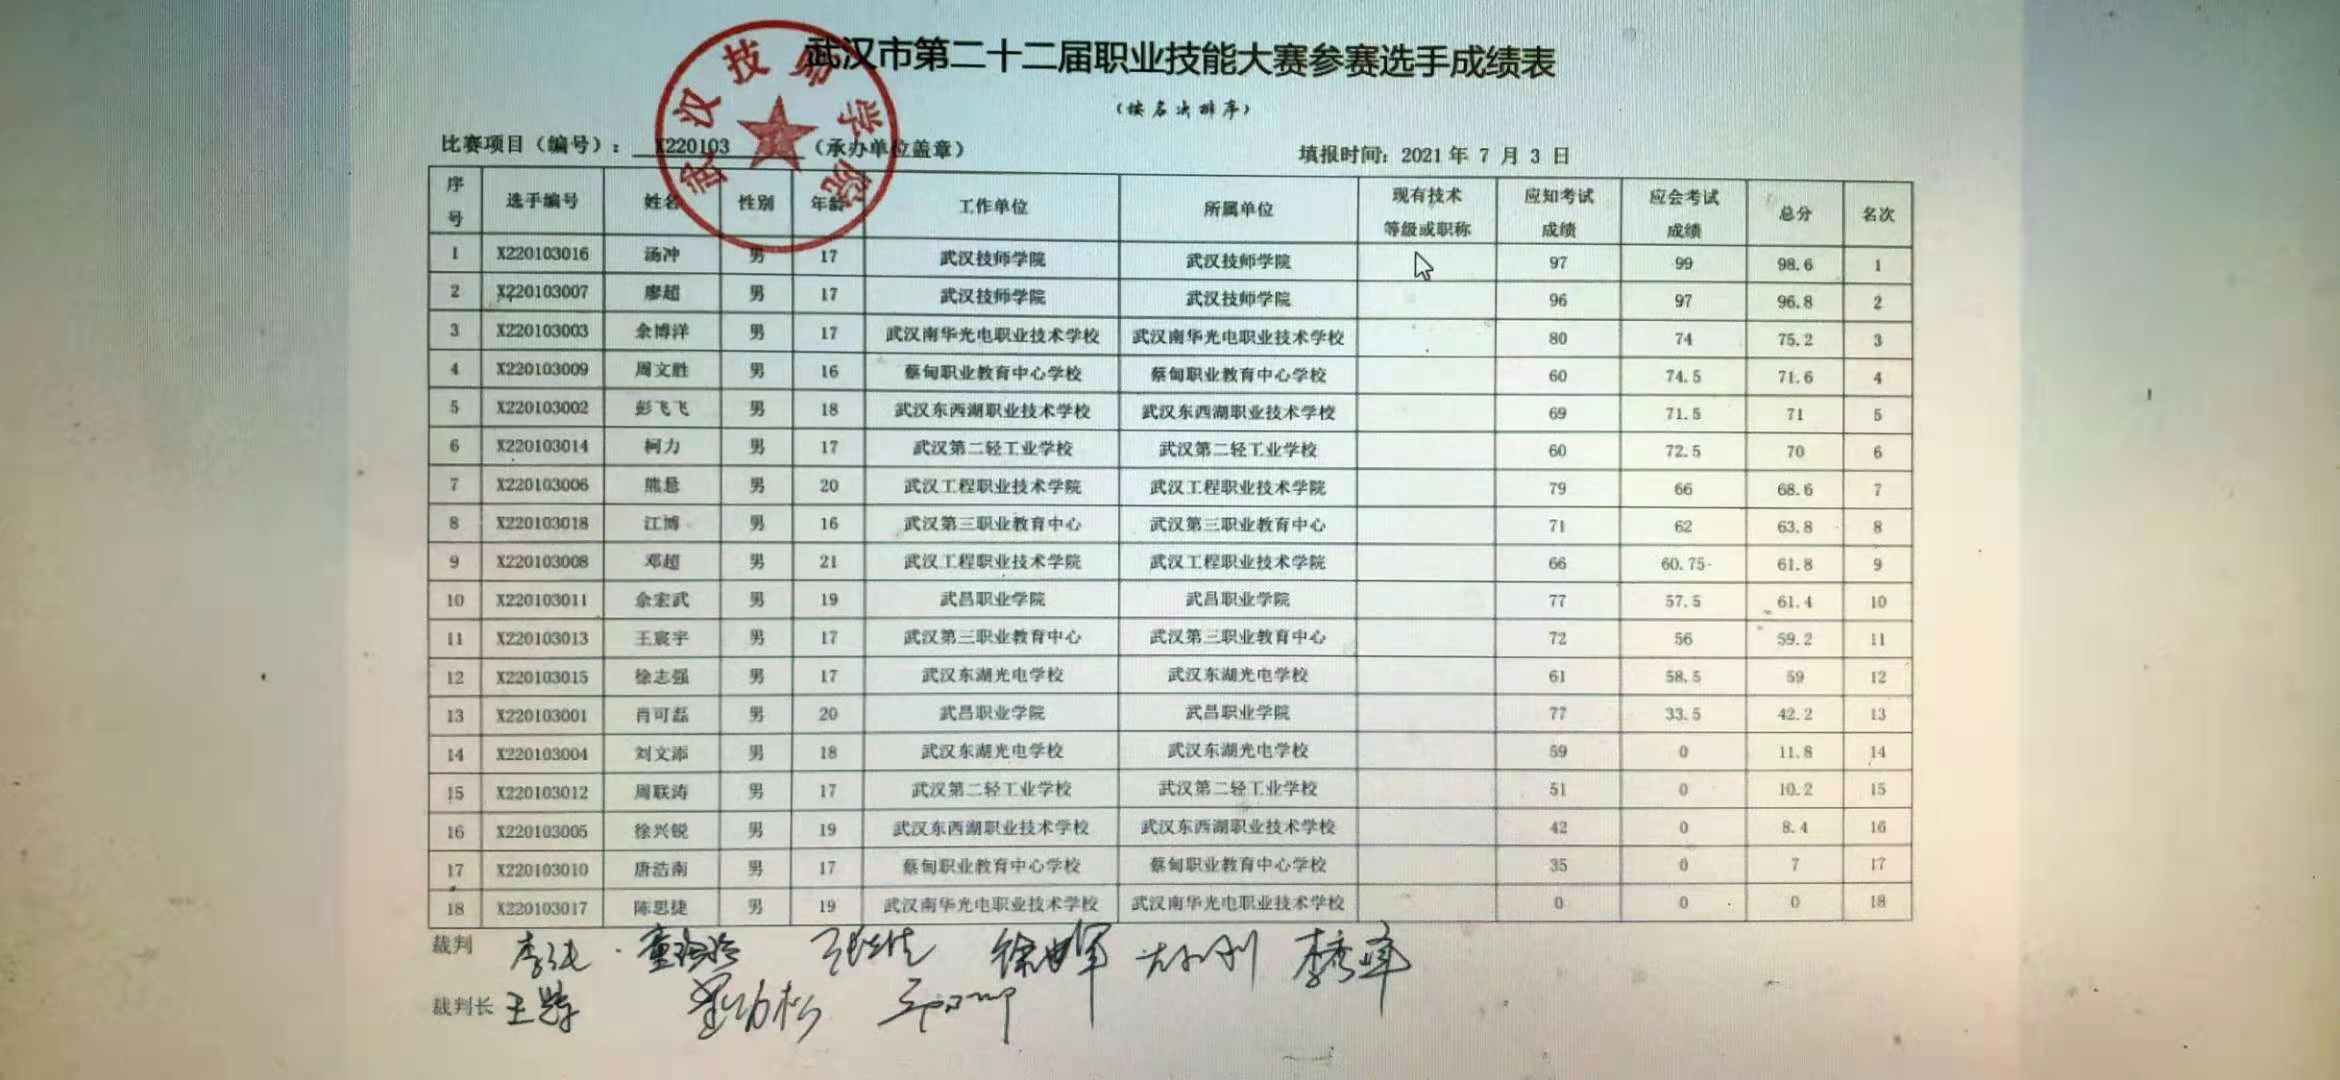 武汉市第二十二届职业技能大赛参赛选手成绩表
（按名次排序）
武汉技师学院
比赛项目（编号）： X220103 （承办单位盖章） 填报时间：2021年7月3日
序号 选手编号 姓名 性别 年龄 工作单位 所属单位 现有技术等级或职称 应知考试成绩 应会考试成绩 总分 名次
1 X220103016 汤冲 男 17 武汉技师学院 武汉技师学院 97 99 98.6 1
2 X220103007 廖超 男 17 武汉技师学院 武汉技师学院 96 97 96.8 2
3 X220103003 余博洋 男 17 武汉南华光电职业技术学校 武汉南华光电职业技术学校 80 74 75.2 3
4 X220103009 周文胜 男 16 蔡甸职业教育中心学校 蔡甸职业教育中心学校 60 74.5 71.6 4
5 X220103002 彭飞飞 男 18 武汉东西湖职业技术学校 武汉东西湖职业技术学校 69 71.5 71 5
6 X220103014 柯力 男 17 武汉第二轻工业学校 武汉第二轻工业学校 60 72.5 70 6
7 X220103006 男 20 武汉工程职业技术学院 武汉工程职业技术学院 79 66 68.6 7
8 X220103018 江博 男 16 武汉第三职业教育中心 武汉第三职业教育中心 71 62 63.8 8
9 X220103008 邓超 男 21 武汉工程职业技术学院 武汉工程职业技术学院 66 60.75 61.8 9
10 X220103011 余宏武 男 19 武昌职业学院 武昌职业学院 77 57.5 61.4 10
11 X220103013 王宸宇 男 17 武汉第三职业教育中心 武汉第三职业教育中心 72 56 59.2 11
12 X220103015 徐志强 男 17 武汉东湖光电学校 武汉东湖光电学校 61 58.5 59 12
13 X220103001 肖可磊 男 20 武昌职业学院 武昌职业学院 77 33.5 42.2 13
14 X220103004 刘文添 男 18 武汉东湖光电学校 武汉东湖光电学校 59 0 11.8 14
15 X220103012 周联涛 男 17 武汉第二轻工业学校 武汉第二轻工业学校 51 0 10.2 15
16 X220103005 徐兴锐 男 19 武汉东西湖职业技术学校 武汉东西湖职业技术学校 42 0 8.4 16
17 X220103010 唐浩南 男 17 蔡甸职业教育中心学校 蔡甸职业教育中心学校 35 0 7 17
18 X220103017 陈思捷 男 19 武汉南华光电职业技术学校 武汉南华光电职业技术学校 0 0 0 18
裁判 李秀峰
裁判长